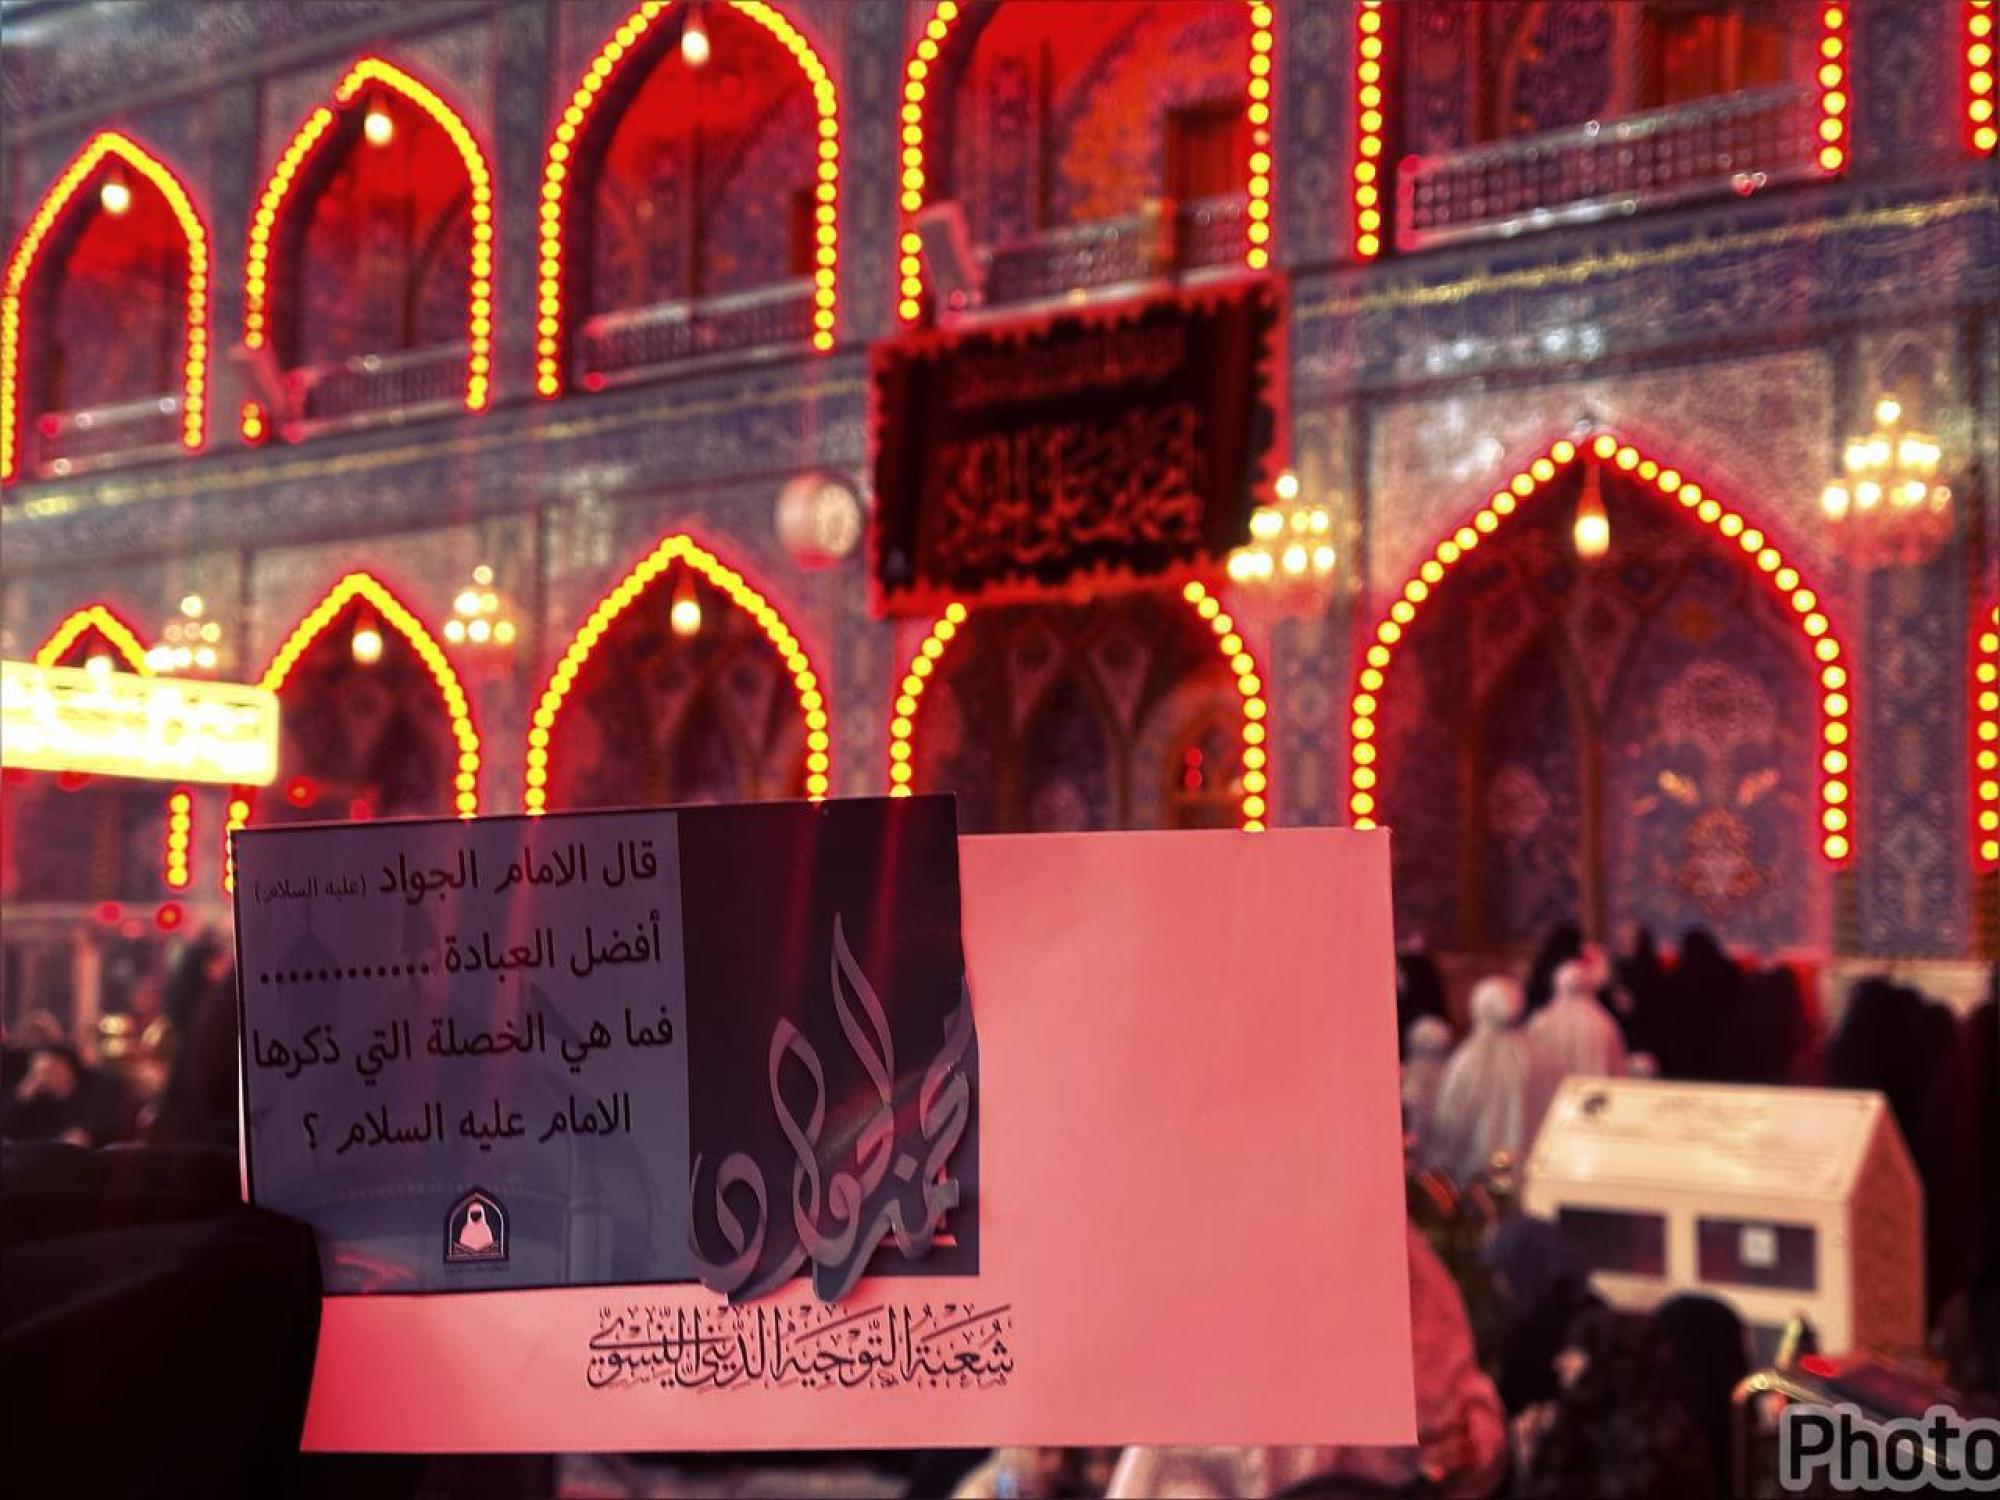 محمد بن علي الجواد
قال الامام الجواد (عليه السلام)
أفضل العبادة ............
فما هي الخصلة التي ذكرها
الامام عليه السلام ؟
محمد الجواد
شعبة التوجيه الديني النسوي
Photo